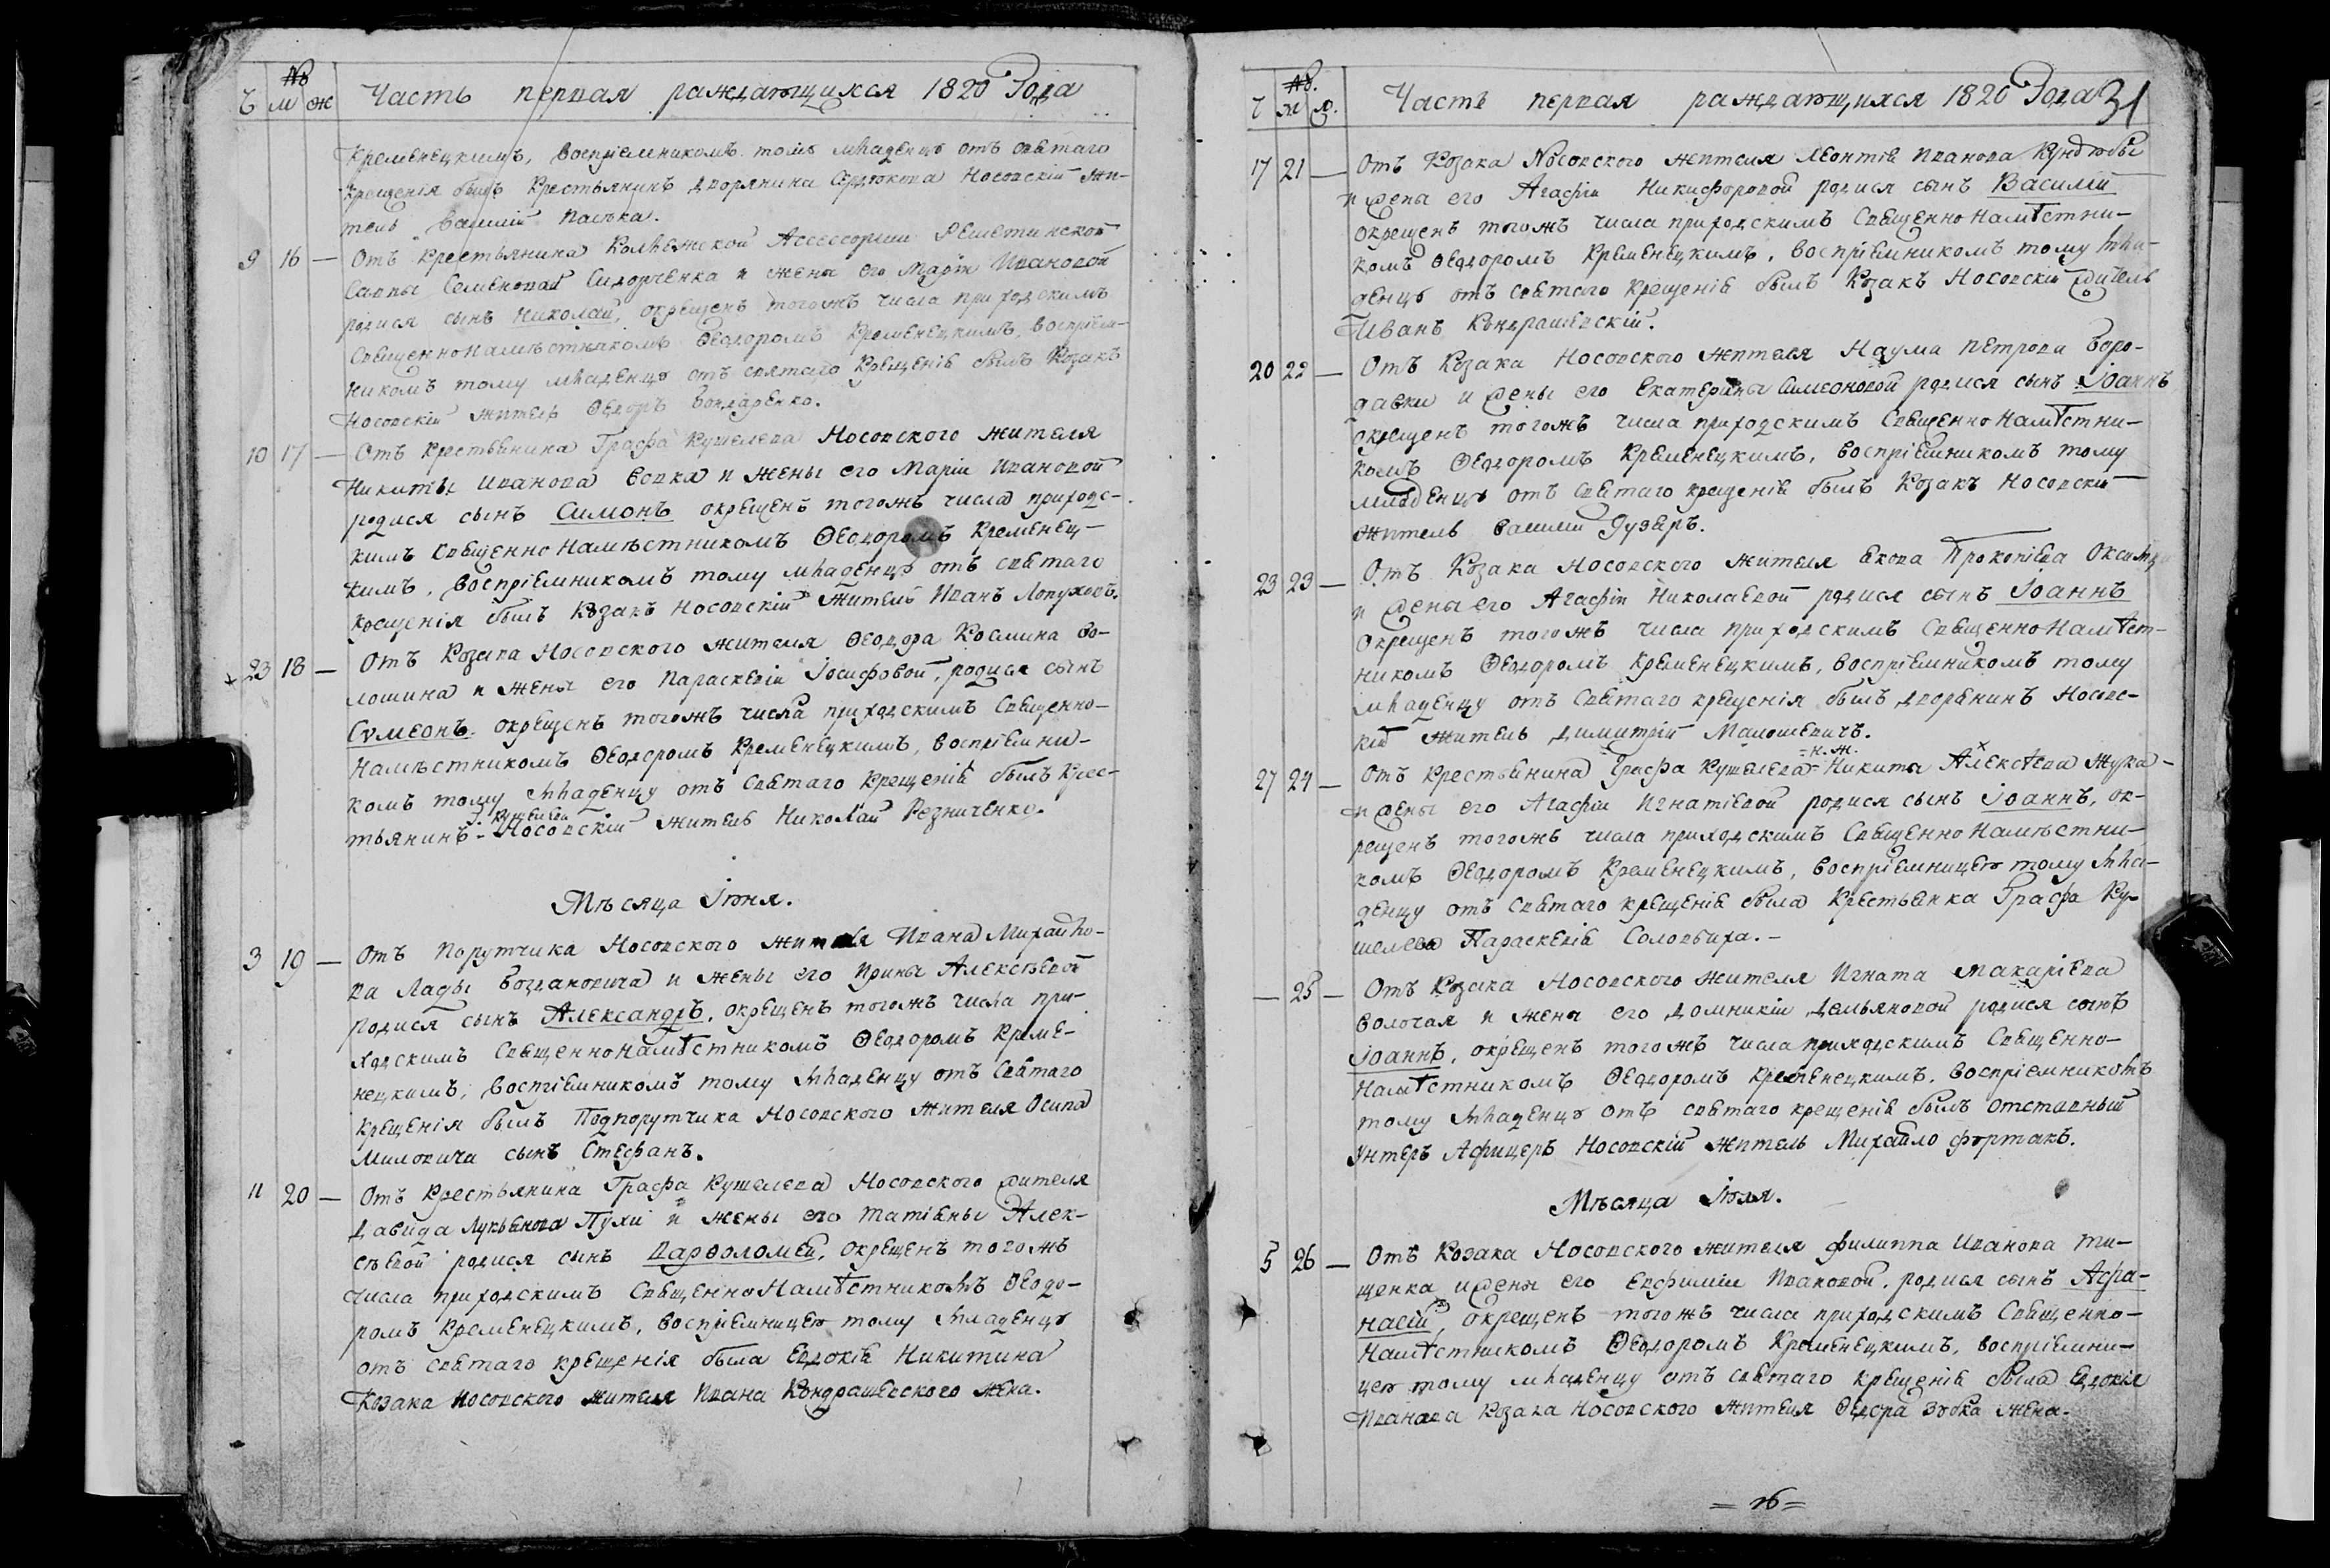 №
Ч м ж Часть первая раждающихся 1820 Года
Кременецкимъ, восприемникомъ тому младенцу отъ святаго
крещенія былъ Крестьянинъ дворянина Сердюкова Носовскій жи-
тель Василій Пасѣка.
9 16 — Отъ крестьянина Коллежской Ассессорши Решетинской
Саввы Семенова Сидорченка и жены его Маріи Ивановой
родися сынъ Николай, окрещенъ тогожъ числа приходскимъ
Священнонамѣстникомъ Ѳеодоромъ Кременецкимъ, воспріем-
никомъ тому младенцу отъ святаго крещенія былъ Козакъ
Носовскій житель Ѳедоръ Бондаренко.
10 17 — Отъ крестьянина Графа Кушелева Носовского жителя
Никиты Иванова Вовка и жены его Маріи Ивановой
родися сынъ Симонъ окрещенъ тогожъ числа приходс-
кимъ Священно Намѣстникомъ Ѳеодоромъ Кременец-
кимъ, воспріемникомъ тому младенцу отъ святаго
крещенія былъ Козакъ Носовскій житель Иванъ Лопуховъ.
23 18 — Отъ Козака Носовского жителя Ѳеодора Космина Во-
лошина и жены его Параскевіи Іосифовой, родися сынъ
Сѵмеонъ окрещенъ тогожъ числа приходскимъ Священно-
Намѣстникомъ Ѳеодоромъ Кременецкимъ, воспріемни-
комъ тому младенцу отъ святаго крещенія былъ крес-
г. Кушелева
тьянинъ - Носовскій житель Николай Резниченко.
Мѣсяца Іюня.
3 19 — Отъ Порутчика Носовского жителя Ивана Михайло-
ва Лады Богдановича и жены его Ирины Алексѣевой
родися сынъ Александръ, окрещенъ тогожъ числа при-
ходскимъ Священнонамѣстникомъ Ѳеодоромъ Креме-
нецкимъ, воспріемникомъ тому младенцу отъ святаго
крещенія былъ Подпорутчика Носовского жителя Осипа
Миловича сынъ Стефанъ.
11 20 — Отъ крестьянина Графа Кушелева Носовского жителя
Давида Лукьянова Пухи и жены его Татіаны Алек-
сѣевой родися сынъ Варѳоломей, окрещенъ тогожъ
числа приходскимъ Священно Намѣстникомъ Ѳеодо-
ромъ Кременецкимъ, воспріемницею тому младенцу
отъ святаго крещенія была Евдокія Никитина
Козака Носовского жителя Ивана Кондрашевского жена.
№
Ч м ж. Часть первая раждающихся 1820 Года 31
17 21 — Отъ Козака Носовского жителя Леонтія Иванова Кундюбы
и жены его Агафіи Никифоровой родися сынъ Василій
окрещенъ тогожъ числа приходскимъ Священно Намѣстни-
комъ Ѳеодоромъ Кременецкимъ, воспріемникомъ тому мла-
денцу отъ святаго крещенія былъ Козакъ Носовскій житель
Иванъ Кондрашевскій.
20 22 — Отъ Козака Носовского жителя Наума Петрова Боро-
давки и жены его Екатерины Симеоновой родися сынъ Іоаннъ
окрещенъ тогожъ числа приходскимъ Священно Намѣстни-
комъ Ѳеодоромъ Кременецкимъ, воспріемникомъ тому
младенцу отъ святаго крещенія былъ Козакъ Носовскій
житель Василій Дузѣръ.
23 23 — Отъ Козака Носовского жителя Якова Прокопіева
и жены его Агафіи Николаевой родися сынъ Іоаннъ
окрещенъ тогожъ числа приходскимъ Священно Намѣст-
никомъ Ѳеодоромъ Кременецкимъ, воспріемникомъ тому
младенцу отъ святаго крещенія былъ дворянинъ Носовс-
кій житель Димитрій Малошевичъ.
- н. ж.
27 24 — Отъ крестьянина Графа Кушелева - Никиты Алексѣева Жука -
и жены его Агафіи Игнатіевой родися сынъ Іоаннъ, ок-
рещенъ тогожъ числа приходскимъ Священно Намѣстни-
комъ Ѳеодоромъ Кременецкимъ, воспріемницею тому мла-
денцу отъ святаго крещенія была крестьянка Графа Ку-
шелева Параскевія Соловьиха. -
— 25 — Отъ Козака Носовского жителя Игната Макаріева
Волочая и жены его Домникіи Демьяновой родися сынъ
Іоаннъ, окрещенъ тогожъ числа приходскимъ Священно-
Намѣстникомъ Ѳеодоромъ Кременецкимъ, воспріемникомъ
тому младенцу отъ святаго крещенія былъ отставный
Унтеръ Афицеръ Носовскій житель Михайло Фортакъ.
Мѣсяца Іюля.
5 26 — Отъ Козака Носовского жителя Филиппа Иванова Ти-
щенка и жены его Евфиміи Ивановой, родися сынъ Афа-
насій, окрещенъ тогожъ числа приходскимъ Священно-
Намѣстникомъ Ѳеодоромъ Кременецкимъ, воспріемни-
цею тому младенцу отъ святаго крещенія была Евдокія
Иванова Козака Носовского жителя Ѳедора Зубка жена.
= 26 =